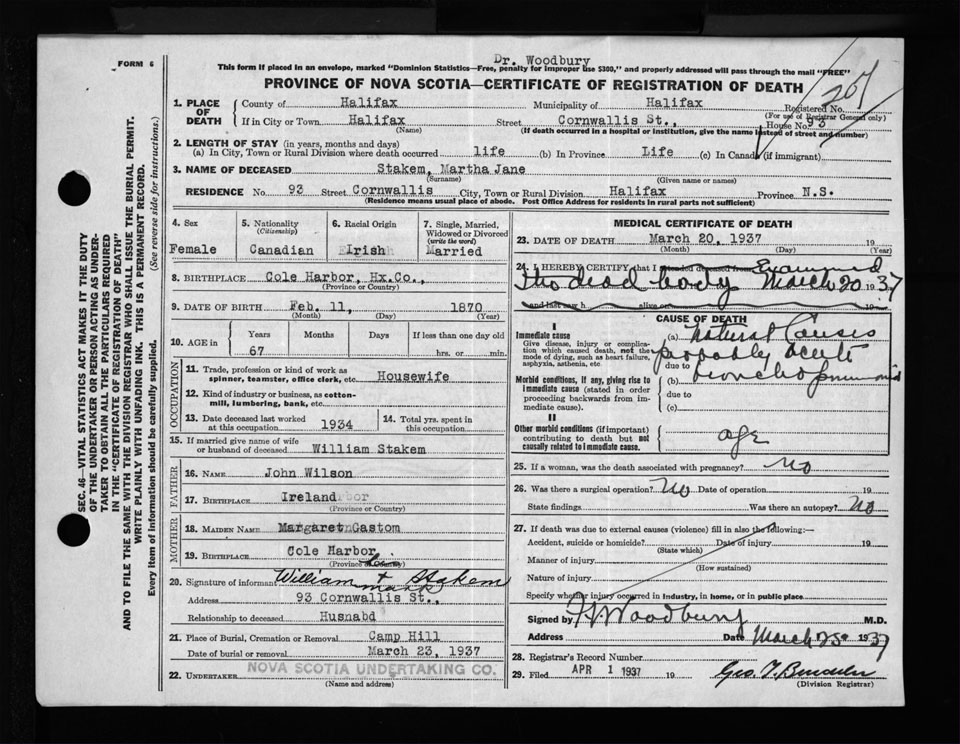 Dr. Woodbury
FORM 6
This form if placed in an envelope, marked "Dominion Statistics—Free, penalty for improper use $300," and properly addressed will pass through the mail "FREE"
PROVINCE OF NOVA SCOTIA—CERTIFICATE OF REGISTRATION OF DEATH
207
SEC. 46—VITAL STATISTICS ACT MAKES IT THE DUTY
OF THE UNDERTAKER OR PERSON ACTING AS UNDER-
TAKER TO OBTAIN ALL THE PARTICULARS REQUIRED
IN THE "CERTIFICATE OF REGISTRATION OF DEATH"
AND TO FILE THE SAME WITH THE DIVISION REGISTRAR WHO SHALL ISSUE THE BURIAL PERMIT.
WRITE PLAINLY WITH UNFADING INK. THIS IS A PERMANENT RECORD.
Every item of information should be carefully supplied. (See reverse side for instructions.)
1. PLACE OF DEATH
County of Halifax Municipality of Halifax Registered No.
(For use of Registrar General only)
If in City or Town Halifax Street Cornwallis St., House No. 93
(Name) (If death occurred in a hospital or institution, give the name instead of street and number)
2. LENGTH OF STAY (in years, months and days)
(a) In City, Town or Rural Division where death occurred life (b) In Province Life (c) In Canada (if immigrant)
3. NAME OF DECEASED Stakem, Martha Jane
(Surname) (Given name or names)
RESIDENCE No. 93 Street Cornwallis City, Town or Rural Division Halifax Province N.S.
(Residence means usual place of abode. Post Office Address for residents in rural parts not sufficient)
4. Sex
Female
5. Nationality
(Citizenship)
Canadian
6. Racial Origin
Irish
7. Single, Married,
Widowed or Divorced
(write the word)
Married
8. BIRTHPLACE Cole Harbor, Hx.Co.,
(Province or Country)
9. DATE OF BIRTH Feb. 11, 1870
(Month) (Day) (Year)
10. AGE in Years Months Days If less than one day old
67 hrs. or min.
OCCUPATION
11. Trade, profession or kind of work as
spinner, teamster, office clerk, etc. Housewife
12. Kind of industry or business, as cotton-
mill, lumbering, bank, etc.
13. Date deceased last worked
at this occupation 1934
14. Total yrs. spent in
this occupation
15. If married give name of wife
or husband of deceased William Stakem
FATHER
16. NAME John Wilson
17. BIRTHPLACE Ireland
(Province or Country)
MOTHER
18. MAIDEN NAME Margaret Gastom
19. BIRTHPLACE Cole Harbor
(Province or Country)
his
20. Signature of informant William + Stakem
mark
Address 93 Cornwallis St.,
Relationship to deceased Husnabd
21. Place of Burial, Cremation or Removal Camp Hill
Date of burial or removal March 23, 1937
22. UNDERTAKER NOVA SCOTIA UNDERTAKING CO.
(Name and address)
MEDICAL CERTIFICATE OF DEATH
23. DATE OF DEATH March 20, 1937 19
(Month) (Day) (Year)
24. I HEREBY CERTIFY that I attended deceased from Examined
the dead body March 20 1937
and last saw h alive on
CAUSE OF DEATH
I
Immediate cause
Give disease, injury or complica-
tion which caused death, not the
mode of dying, such as heart failure,
asphyxia, asthenia, etc.
(a) Natural Causes
probably acute
due to
(b) bronchopneumonia
Morbid conditions, if any, giving rise to
immediate cause (stated in order
proceeding backwards from im-
mediate cause).
due to
(c)
II
Other morbid conditions (if important)
contributing to death but not
causally related to immediate cause.
age
25. If a woman, was the death associated with pregnancy? no
26. Was there a surgical operation? No Date of operation 19
State findings Was there an autopsy? No
27. If death was due to external causes (violence) fill in also the following:—
Accident, suicide or homicide? Date of injury 19
(State which)
Manner of injury
(How sustained)
Nature of injury
Specify whether injury occurred in industry, in home, or in public place
Signed by Woodbury M.D.
Address Date March 23 1937
28. Registrar's Record Number
29. Filed APR 1 1937 19
(Division Registrar)